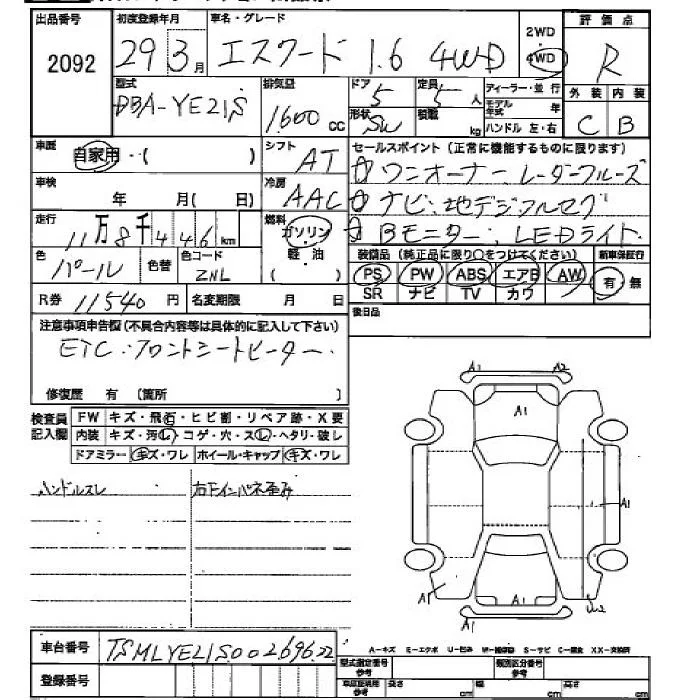 出品番号 初度登録年月 車名・グレード 2WD 評価点
2092 29 3月 エスクード 1.6 4WD 4WD R
型式 排気量 ドア 定員 ディーラー・並行 外装 内装
DBA-YE21S 1600 cc 5 5人 モデル年式 年 C B
形状 SW 積載 kg ハンドル 左・右
車歴 自家用・( ) シフト AT セールスポイント(正常に機能するものに限ります)
☆ワンオーナー、レーダークルーズ
車検 年 月( 日) 冷房 AAC ☆ナビ・地デジフルセグ
走行 11万8千446km 燃料 ガソリン 軽・油 ☆Bモニター、LEDライト
色 パール 色替 色コード ZNL 装備品(純正品に限り○をつけてください) 新車保証行
PS PW ABS エアB AW 有・無
R券 11540円 名変期限 月 日 SR ナビ TV カワ
注意事項申告欄(不具合内容等は具体的に記入して下さい) 後日品
ETC・フロントシートヒーター・
修復歴 有 〔箇所 〕
検査員記入欄 FW キズ・飛石・ヒビ割・リペア跡・X要
内装 キズ・汚レ・コゲ・穴・スレ・ヘタリ・破レ
ドアミラー キズ・ワレ ホイール・キャップ キズ・ワレ
ハンドルスレ 右下インパネ歪み
A1 A2
A1
A1
A1 A1 U2
車台番号 TSMLYE21S00269622
A-キズ E-エクボ U-凹み W-補修跡 S-サビ C-腐食 XX-交換済
登録番号 型式指定番号 参考 類別区分番号 参考
車庫証明用 参考 長さ cm 幅 cm 高さ cm